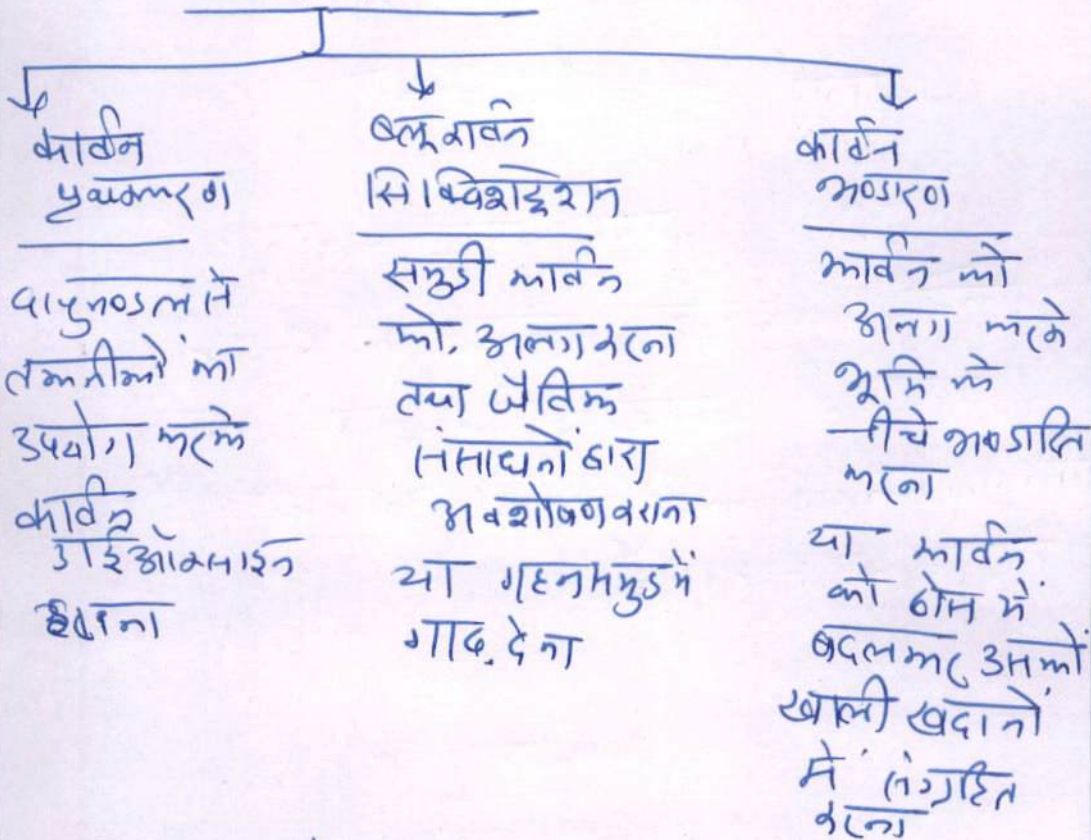 कार्बन
पृथक्करण
वायुमण्डल से
तकनीकों का
उपयोग करके
कार्बन
डाईऑक्साईड
हटाना
ब्लू कार्बन
सिक्विशट्रेशन
समुद्री कार्बन
को अलग करना
तथा जैविक
संसाधनों द्वारा
अवशोषण कराना
या गहन समुद्र में
गाढ़ देना
कार्बन
भण्डारण
कार्बन को
अलग करके
भूमि के
नीचे भण्डारित
करना
या कार्बन
को ठोस में
बदलकर उसको
खाली खदानों
में संग्रहित
करना